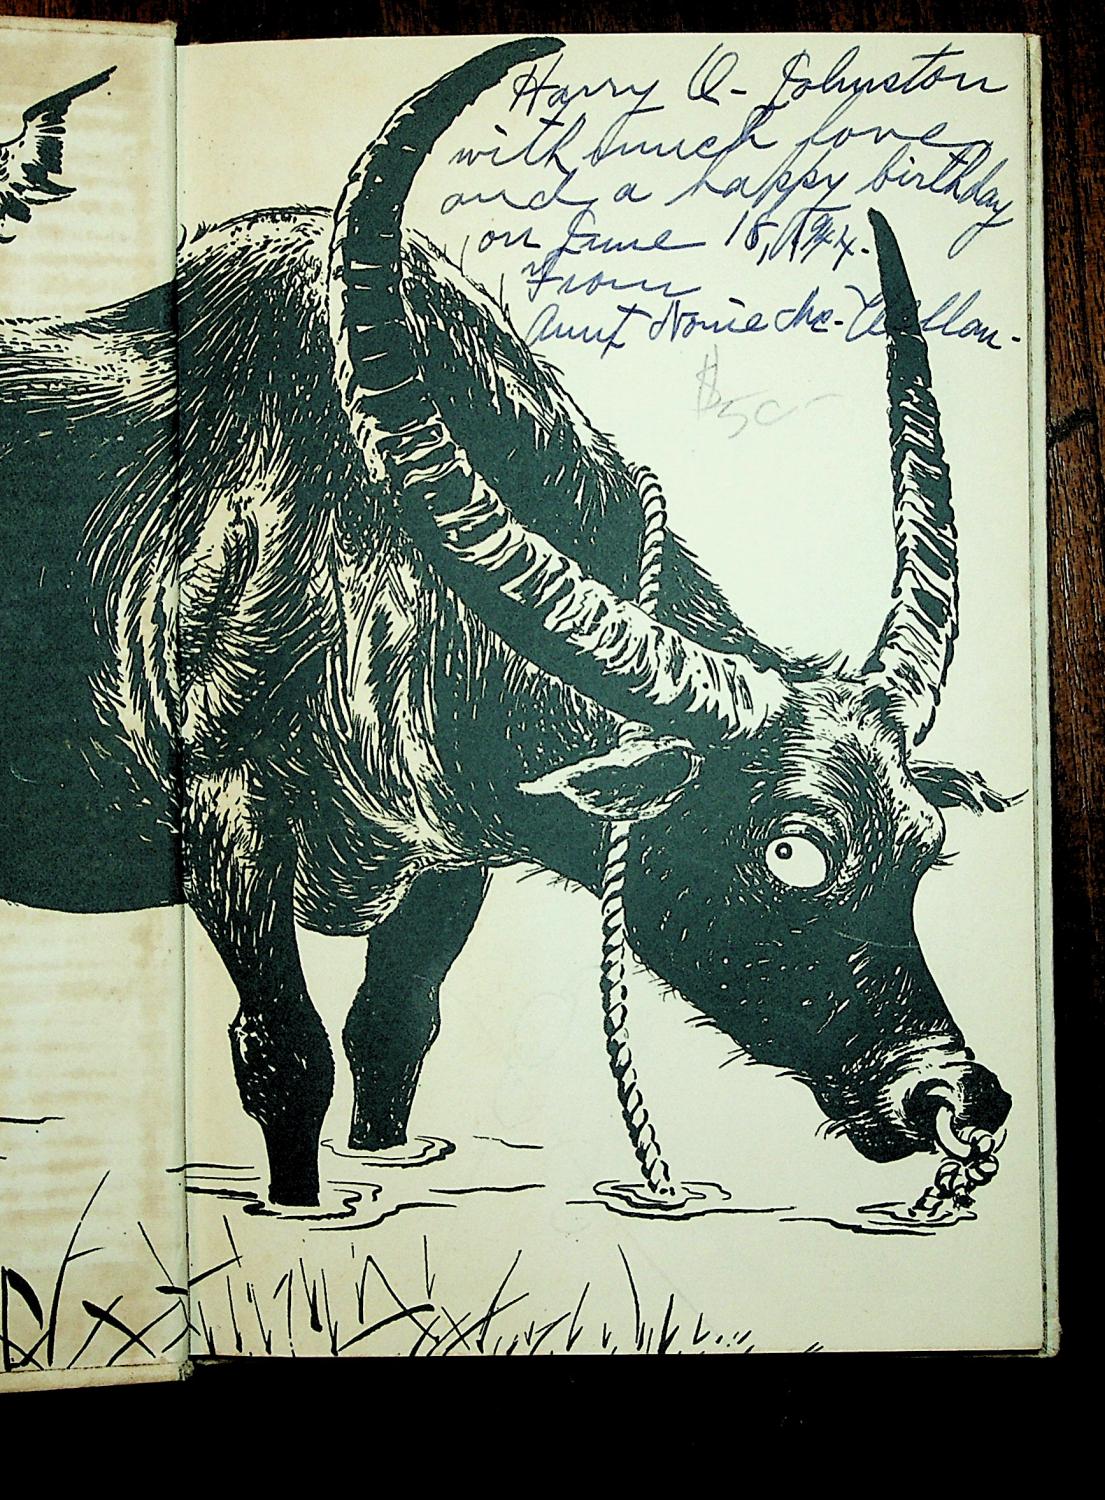 Harry O. Johnston
with much love
and a happy birthday
on June 15, 1944.
From
Aunt Nonie Mc-Clellan.
$5